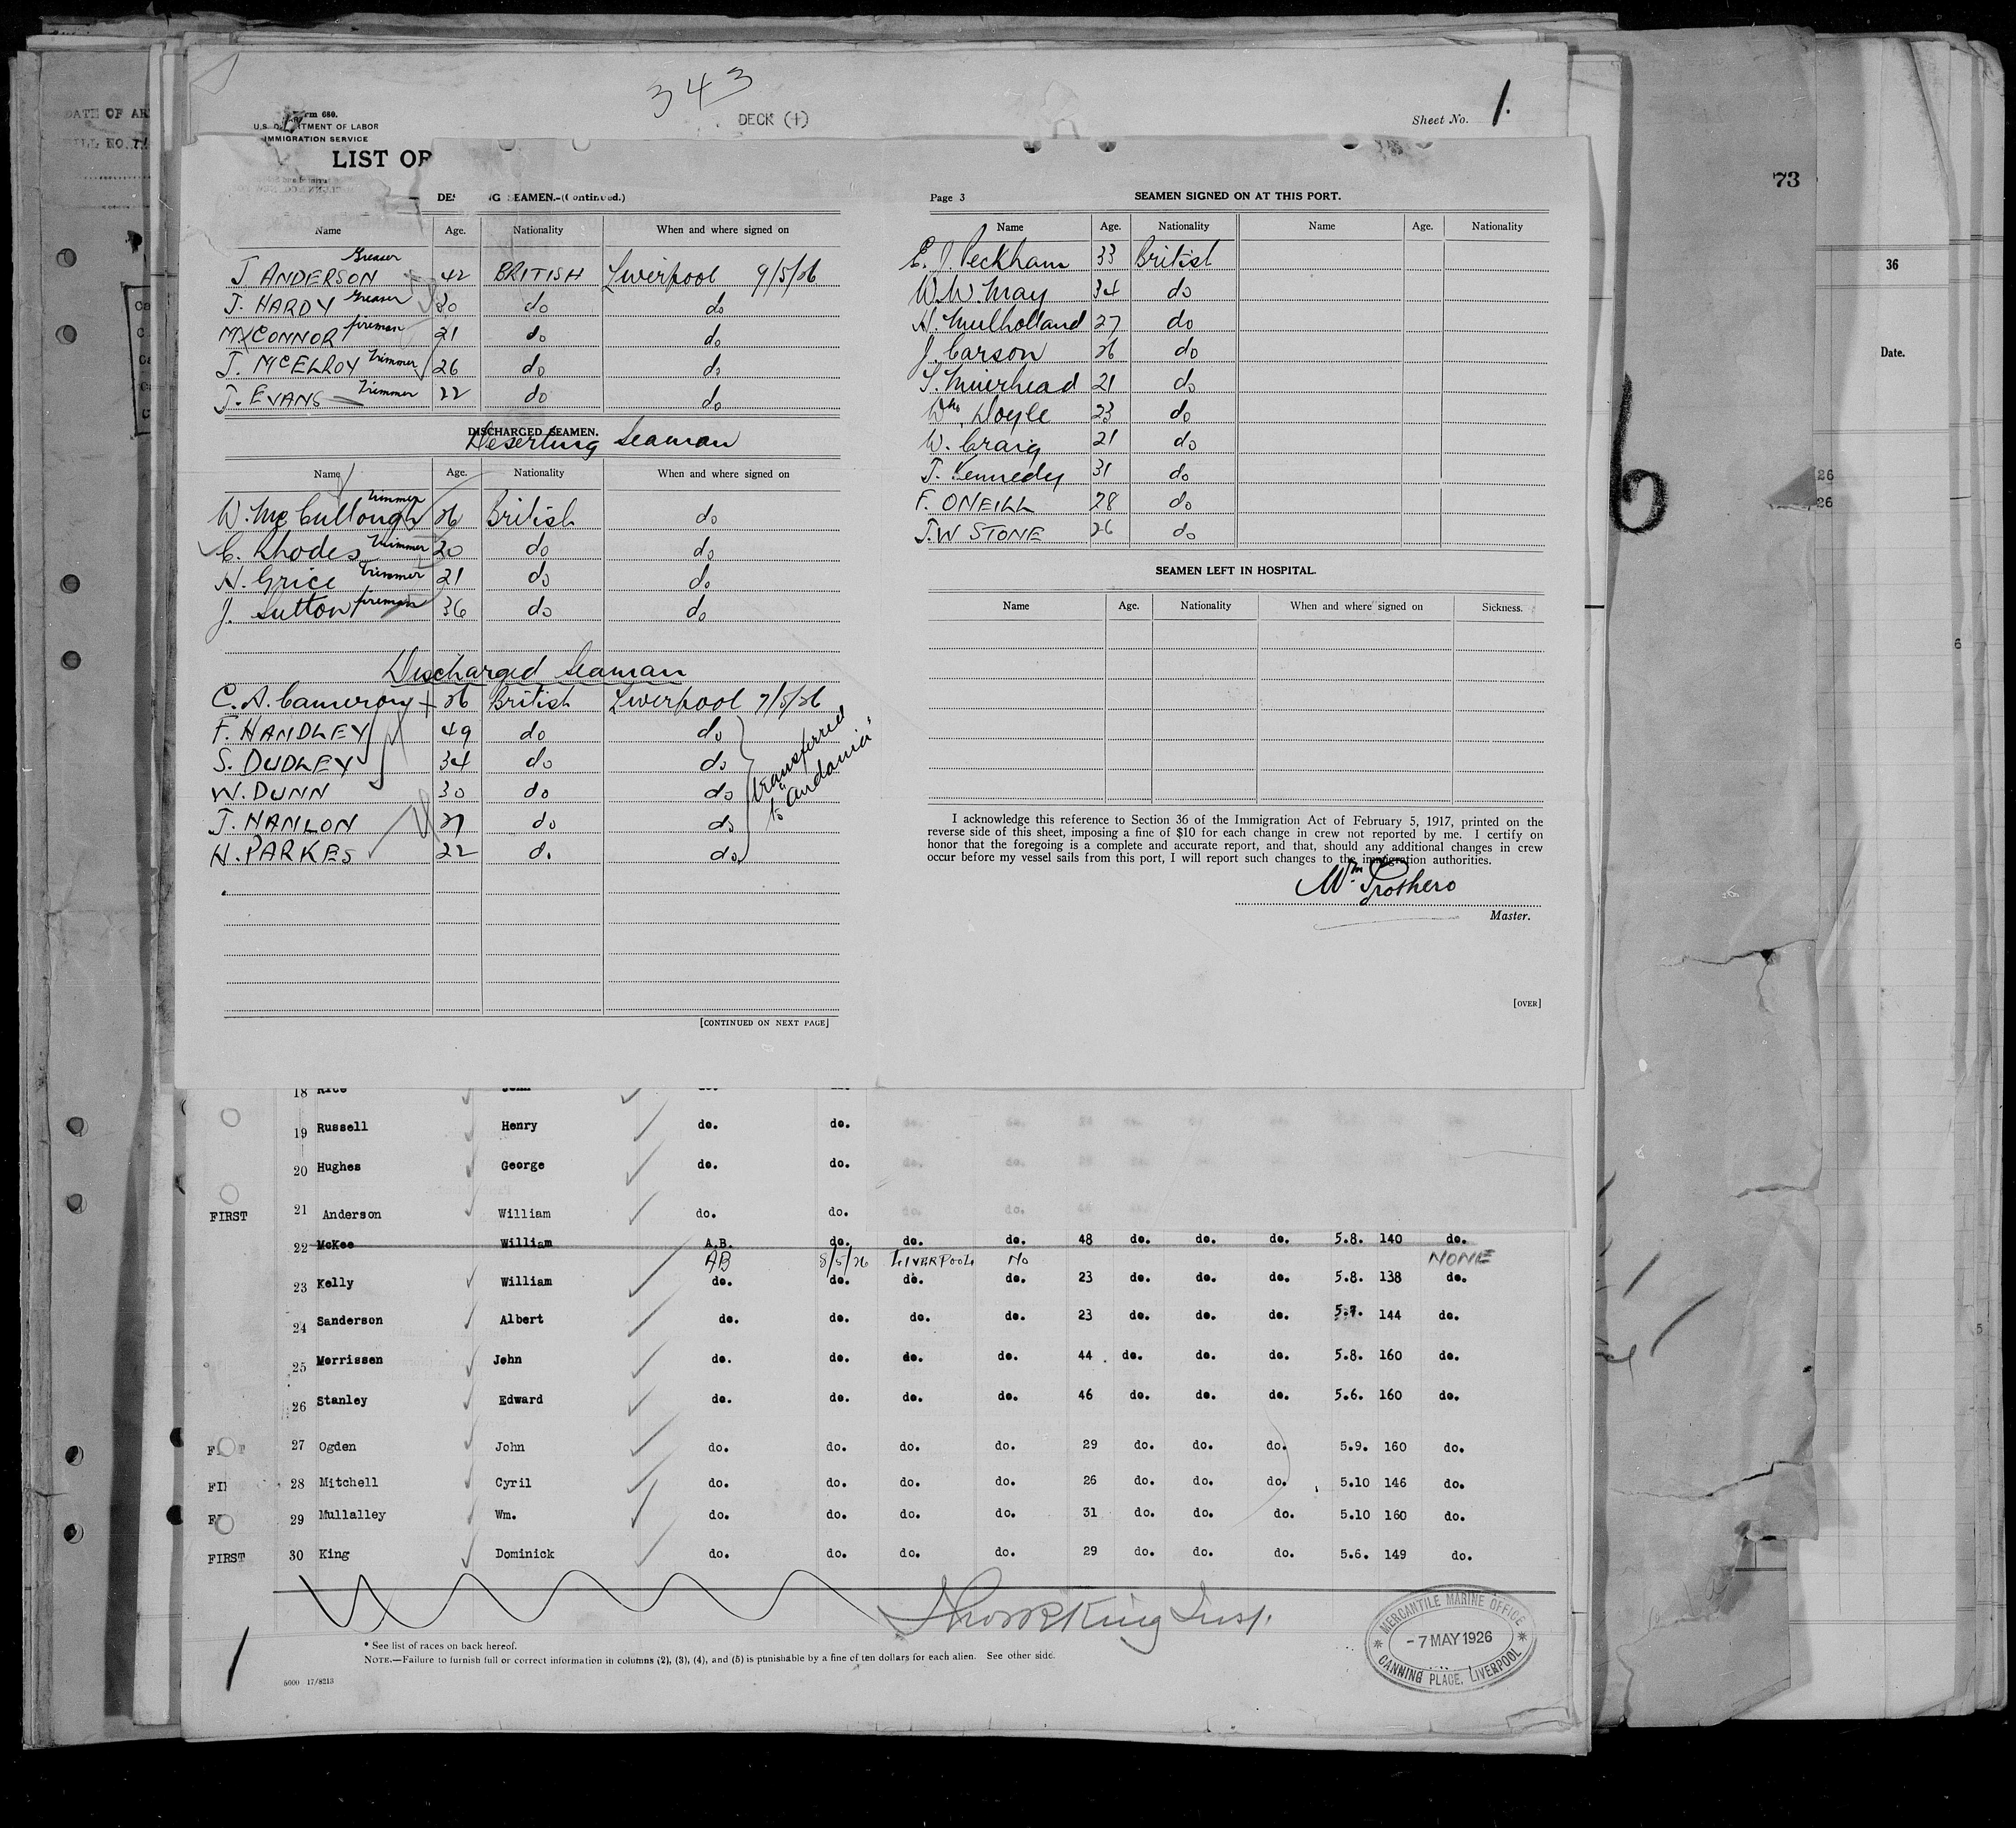 343
DECK (+)
Sheet No. 1.
rm 680.
U.S. D TMENT OF LABOR
IMMIGRATION SERVICE
LIST OF
DATE OF AR
73
36
Date.
26
26
6
5
DES NG SEAMEN.-(Continued.)
Name Age. Nationality When and where signed on
J ANDERSON Greaser 42 BRITISH Liverpool 9/5/26
J. HARDY Greaser 30 do do
M CONNOR fireman 21 do do
J. McELROY Trimmer 26 do do
J. EVANS Trimmer 22 do do
DISCHARGED SEAMEN.
Deserting Seaman
Name Age. Nationality When and where signed on
W. McCullough Trimmer 26 British do
C. Rhodes Trimmer 20 do do
H. Grice Trimmer 21 do do
J. Sutton fireman 36 do do
Discharged Seaman
C. A. Cameron + 26 British Liverpool 7/5/26
F. HANDLEY 49 do do
S. DUDLEY 34 do do
W. DUNN 30 do do
J. HANLON 21 do do
H. PARKES 22 do do
transferred
to "Andania"
[CONTINUED ON NEXT PAGE]
Page 3 SEAMEN SIGNED ON AT THIS PORT.
Name Age. Nationality Name Age. Nationality
E. J Peckham 33 British
W. W. May 34 do
H. Mulholland 27 do
J. Carson 26 do
T. Muirhead 21 do
Wm. Doyle 23 do
W. Craig 21 do
T. Kennedy 31 do
F. ONEILL 28 do
J.W STONE 26 do
SEAMEN LEFT IN HOSPITAL.
Name Age. Nationality When and where signed on Sickness.
I acknowledge this reference to Section 36 of the Immigration Act of February 5, 1917, printed on the
reverse side of this sheet, imposing a fine of $10 for each change in crew not reported by me. I certify on
honor that the foregoing is a complete and accurate report, and that, should any additional changes in crew
occur before my vessel sails from this port, I will report such changes to the immigration authorities.
Wm Prothero
Master.
[OVER]
18 Rice John do.
19 Russell Henry do. do.
20 Hughes George do. do.
FIRST 21 Anderson William do. do.
22 McKee William A.B. do. do. do. 48 do. do. do. 5.8. 140 do.
AB 8/5/26 LIVERPOOL No NONE
23 Kelly William do. do. do. do. 23 do. do. do. 5.8. 138 do.
24 Sanderson Albert do. do. do. do. 23 do. do. do. 5.7. 144 do.
25 Morrissen John do. do. do. do. 44 do. do. do. 5.8. 160 do.
26 Stanley Edward do. do. do. do. 46 do. do. do. 5.6. 160 do.
27 Ogden John do. do. do. do. 29 do. do. do. 5.9. 160 do.
28 Mitchell Cyril do. do. do. do. 26 do. do. do. 5.10 146 do.
29 Mullalley Wm. do. do. do. do. 31 do. do. do. 5.10 160 do.
FIRST 30 King Dominick do. do. do. do. 29 do. do. do. 5.6. 149 do.
King Insp.
MERCANTILE MARINE OFFICE
-7 MAY 1926
CANNING PLACE, LIVERPOOL
* See list of races on back hereof.
NOTE.—Failure to furnish full or correct information in columns (2), (3), (4), and (5) is punishable by a fine of ten dollars for each alien. See other side.
5000 17/8213
1